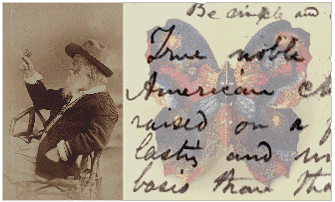 Be simple and
True noble
American
raised on a
lasting and
basis than tha